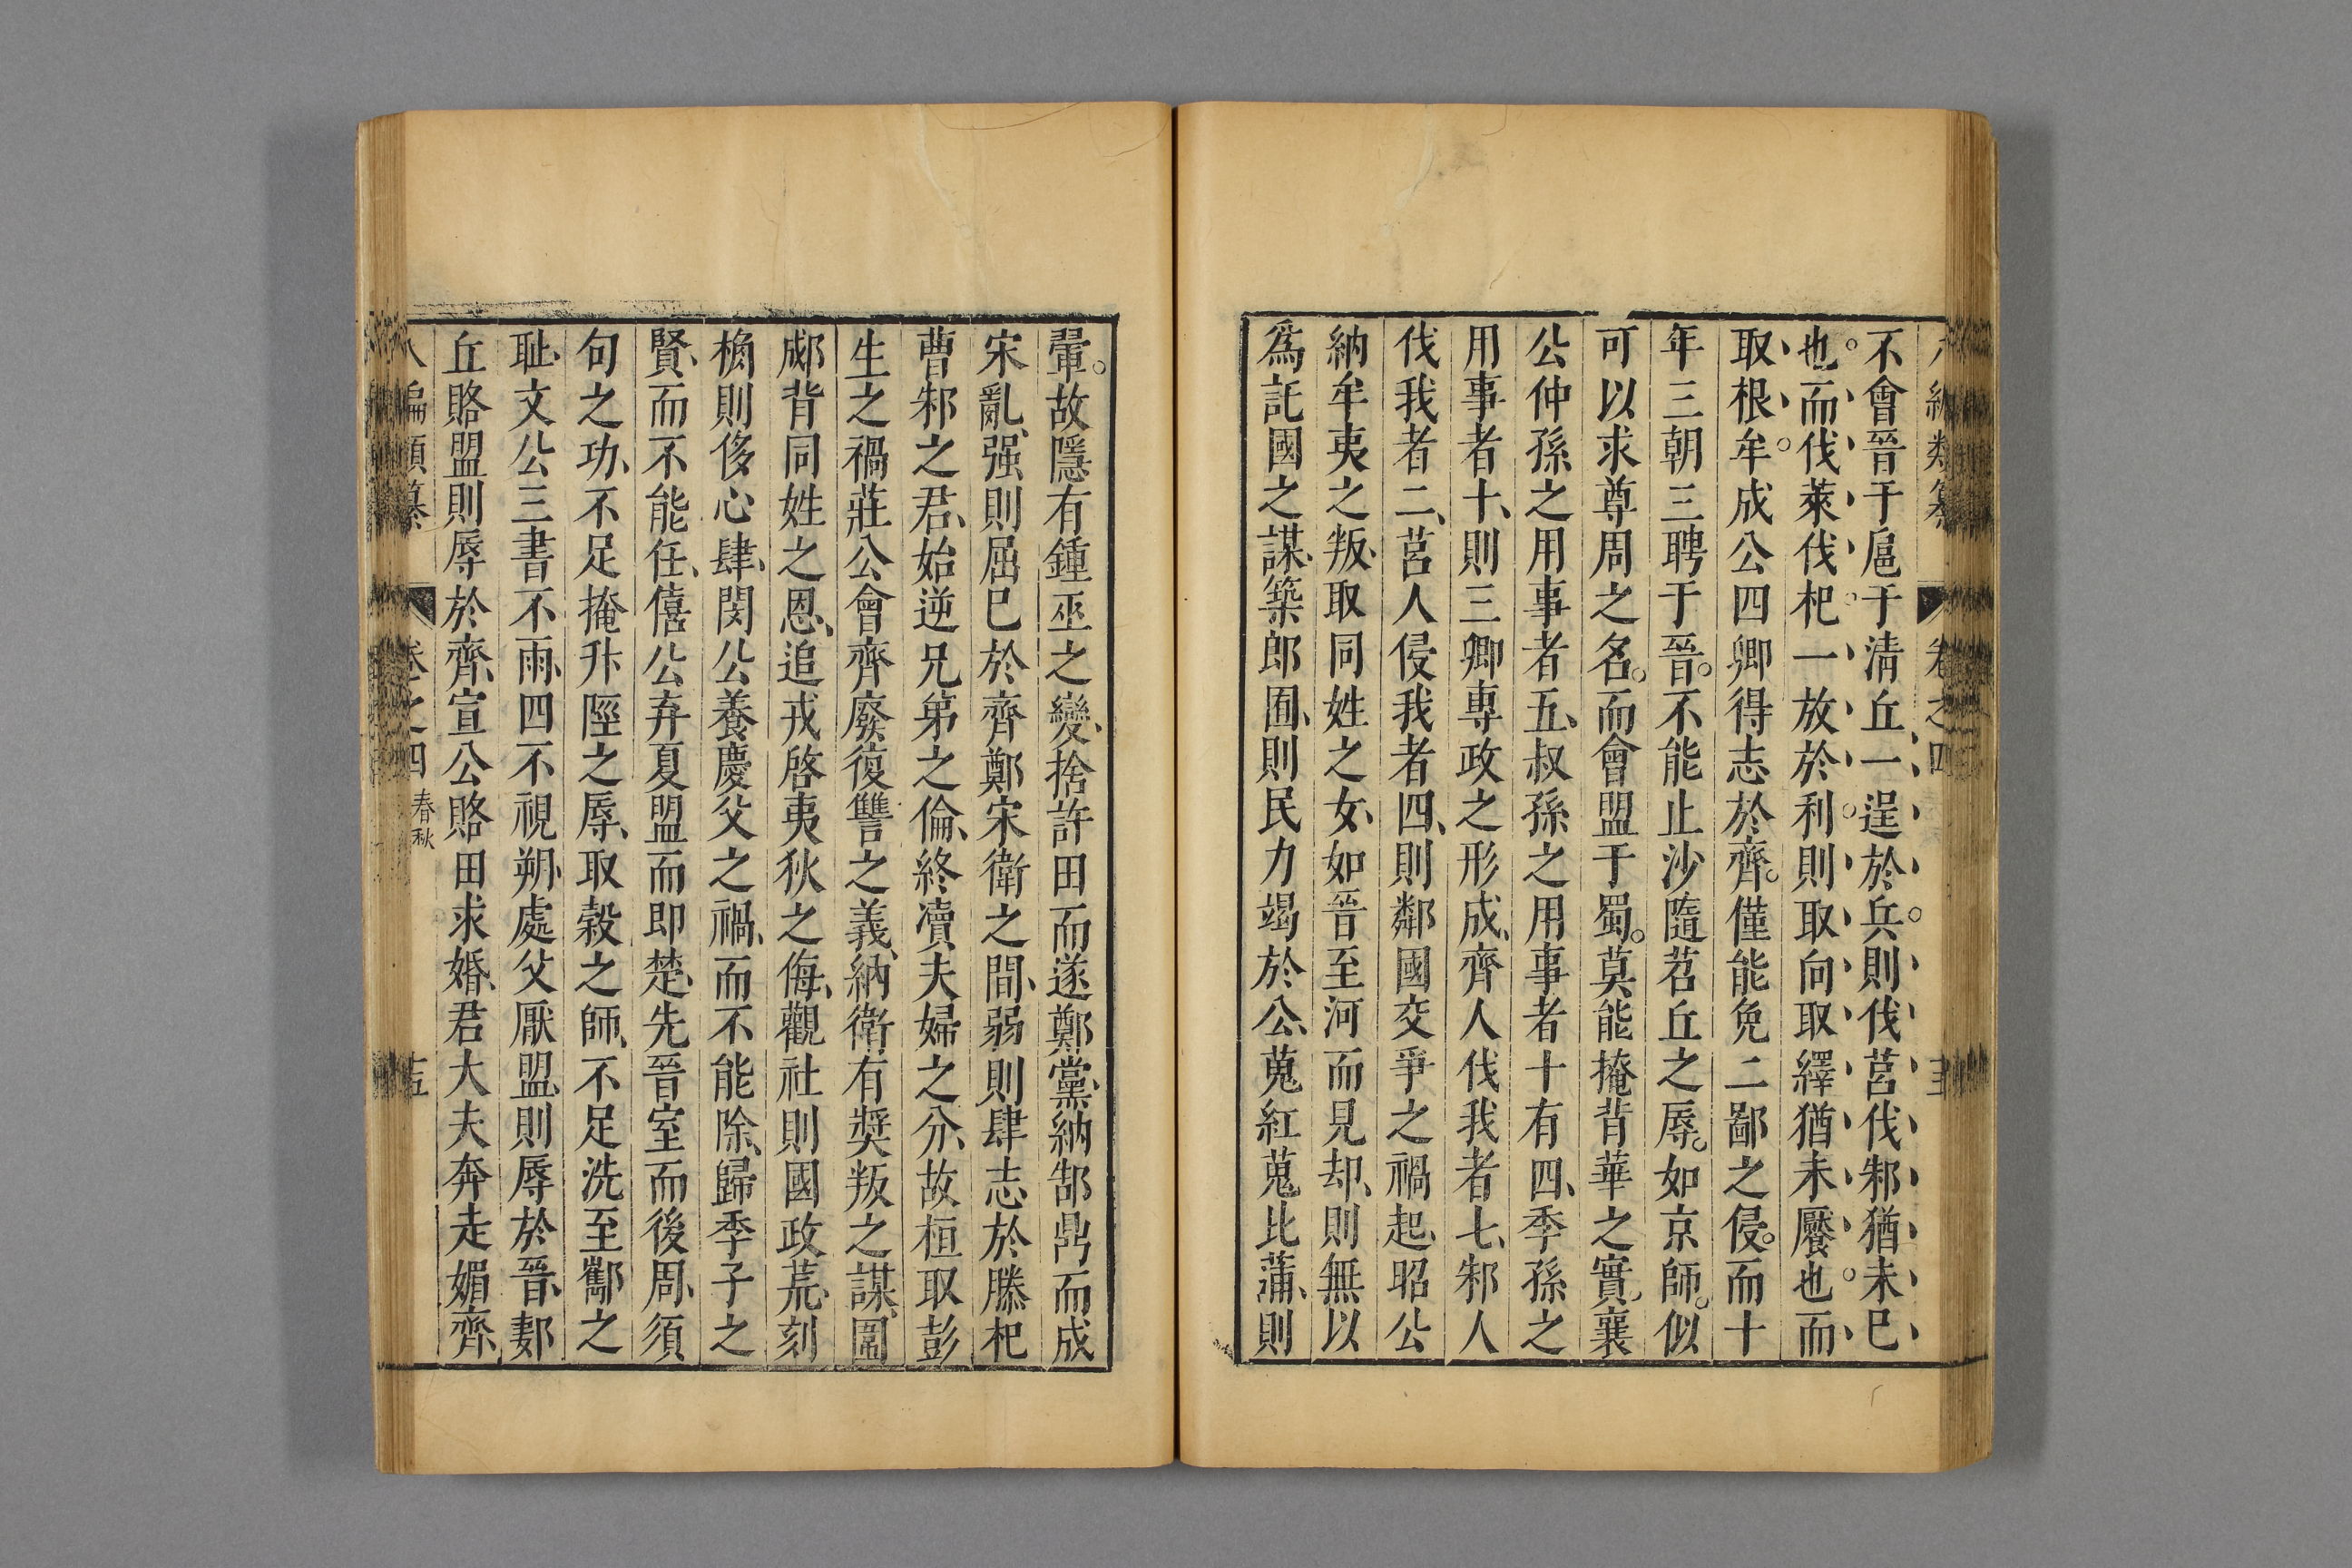 不會晉于扈于清丘一逞於兵則伐莒伐邾猶未巳
也。而伐萊伐杞一放於利則取向取繹猶未饜也。而
取根牟。成公四卿得志於齊。僅能免二鄙之侵。而十
年三朝三聘于晉。不能止沙隨苕丘之辱。如京師。似
可以求尊周之名。而會盟于蜀。莫能掩背華之實。襄
公仲孫之用事者五、叔孫之用事者十有四、季孫之
用事者十、則三卿專政之形成、齊人伐我者七、邾人
伐我者二、莒人侵我者四、則鄰國交爭之禍起、昭公
納牟夷之叛、取同姓之女、如晉至河而見却、則無以
爲託國之謀、築郎囿、則民力竭於公、蒐紅蒐比蒲、則
翬。故隱有鍾巫之變、捨許田而遂鄭黨、納郜鼎而成
宋亂、强則屈巳於齊鄭宋衛之間、弱則肆志於滕杞
曹邾之君、始逆兄弟之倫、終瀆夫婦之分、故桓取彭
生之禍莊公會齊廢復讐之義、納衛有奬叛之謀、圍
郕背同姓之恩、追戎啓夷狄之侮、觀社則國政荒、刻
桷則侈心肆、閔公養慶父之禍、而不能除、歸季子之
賢、而不能任、僖公弃夏盟而即楚、先晉室而後周、須
句之功、不足掩升陘之辱、取穀之師、不足洗至酅之
耻、文公三書不雨、四不視朔、處父厭盟則辱於晉、郪
丘賂盟則辱於齊、宣公賂田求婚、君大夫奔走媚齊、
八編類纂 卷之四 春秋 十五